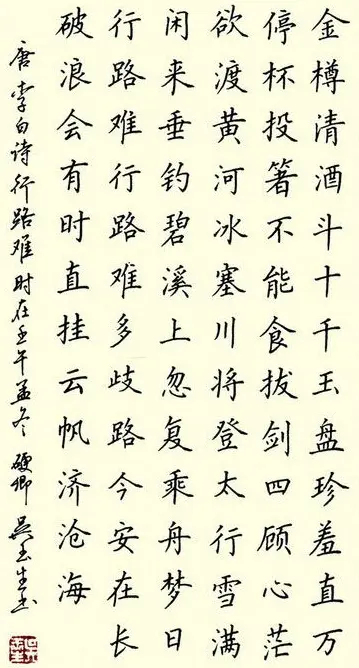 金樽清酒斗十千玉盘珍羞直万
停杯投箸不能食拔剑四顾心茫
欲渡黄河冰塞川将登太行雪满
闲来垂钓碧溪上忽复乘舟梦日
行路难行路难多歧路今安在长
破浪会有时直挂云帆济沧海
唐李白诗行路难时在壬午孟冬硬卿吴玉生书